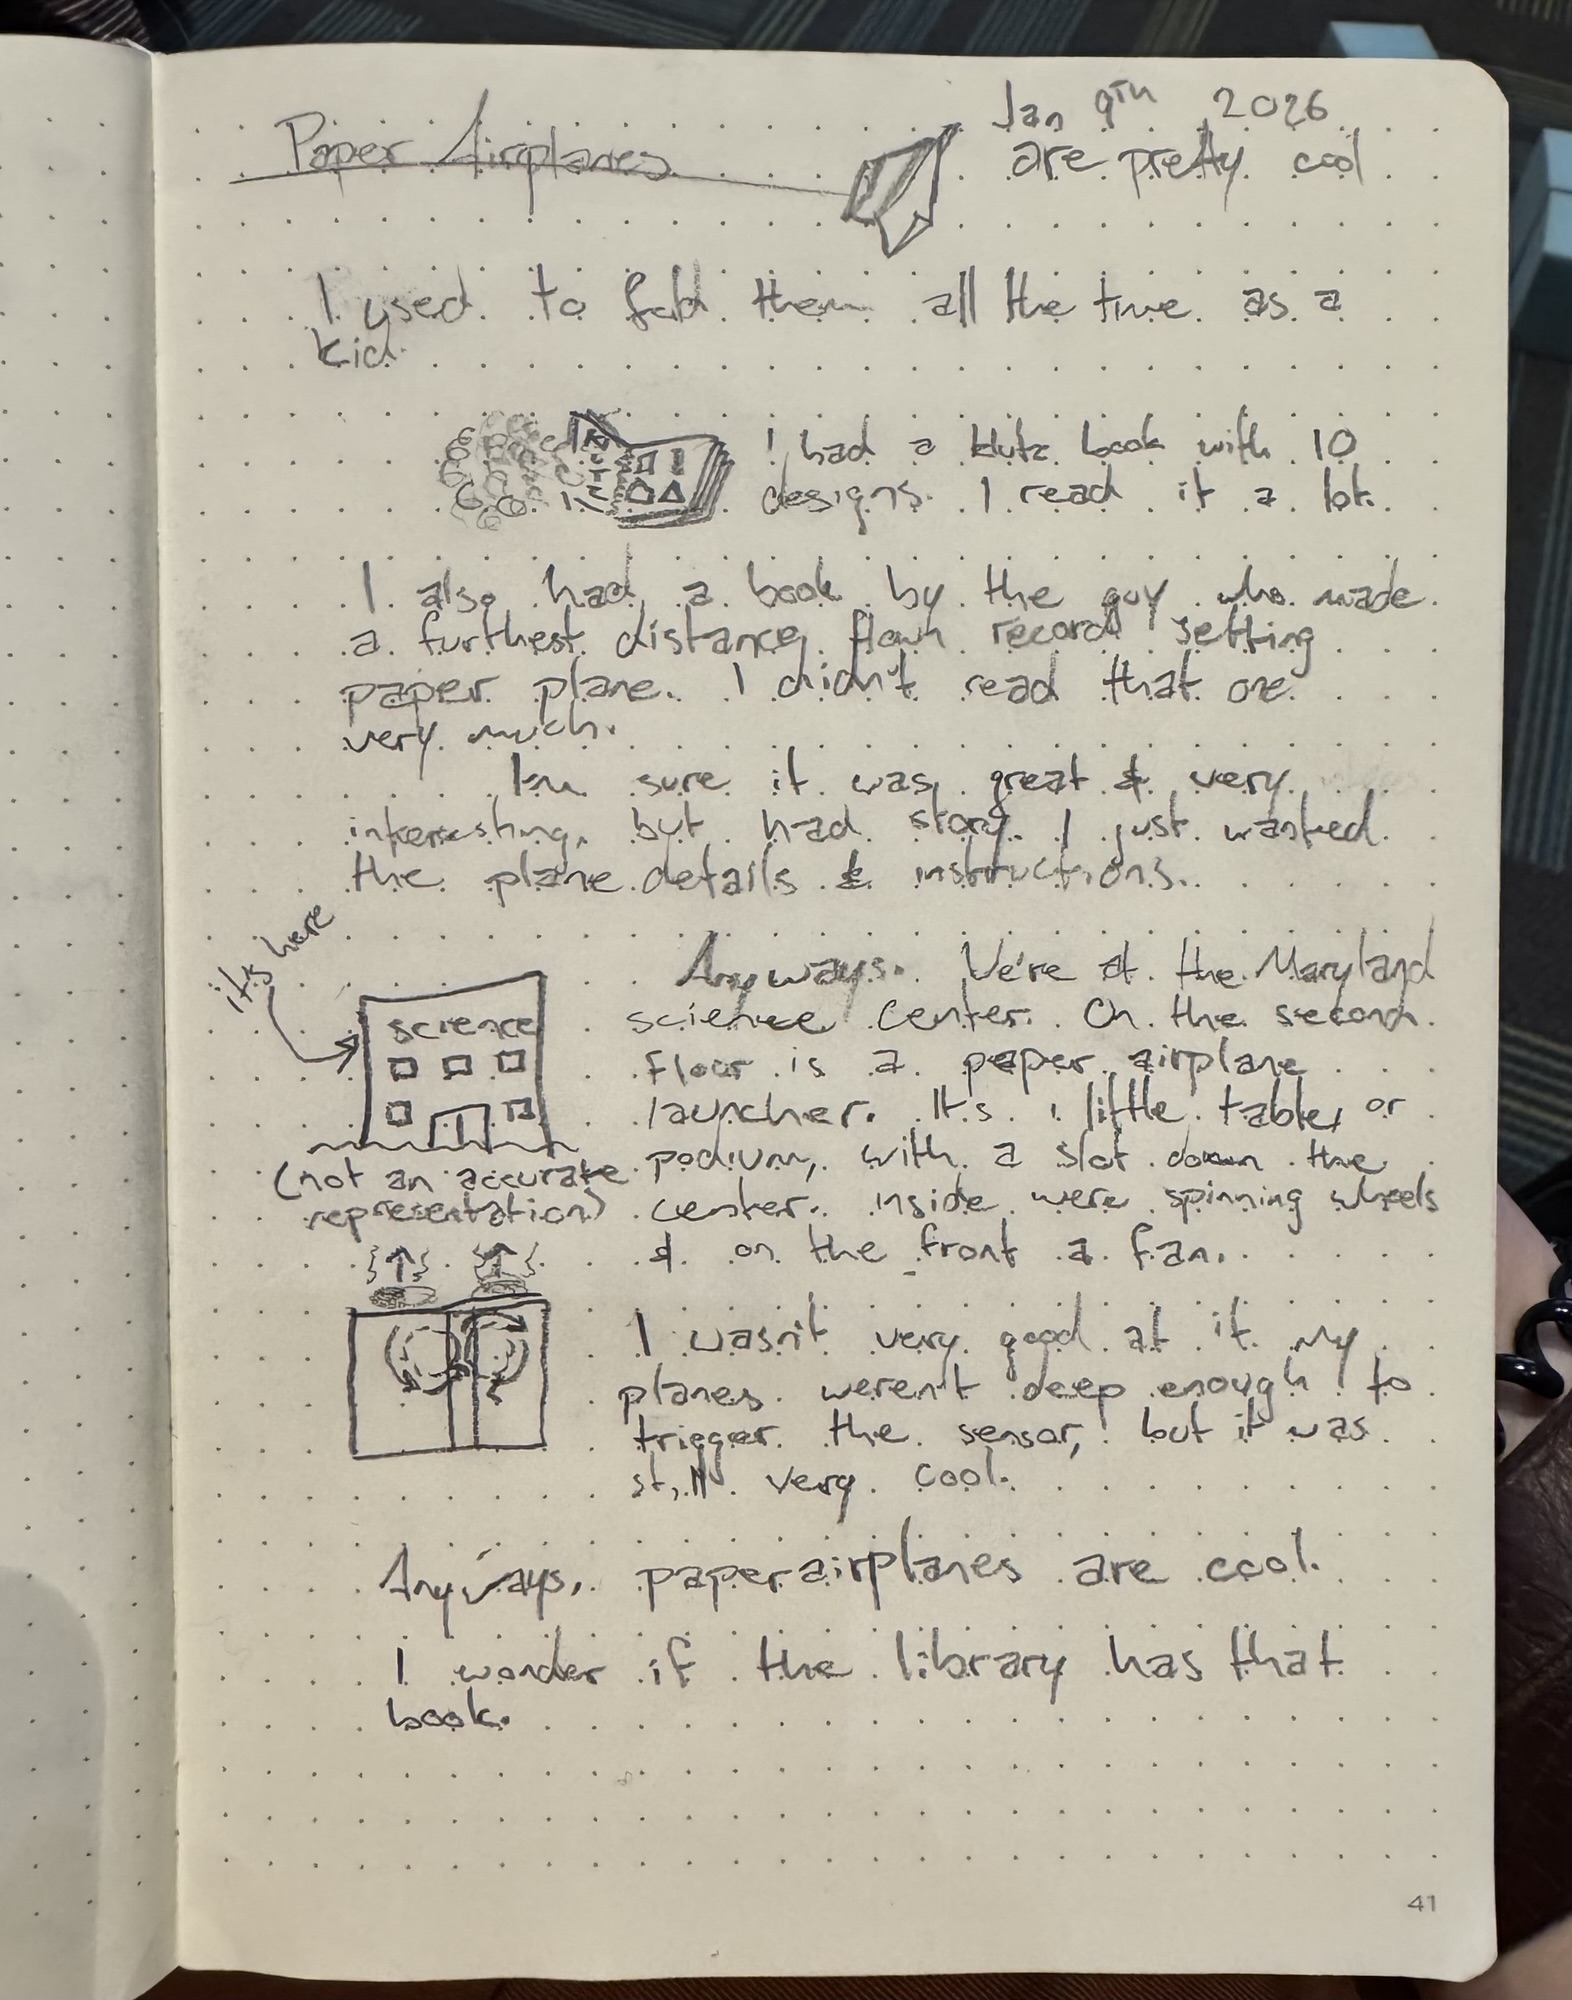 Jan 9th 2026
Paper Airplanes are pretty cool
I used to fold them all the time as a
kid.
I had a klutz book with 10
designs. I read it a lot.
I also had a book by the guy who made
a furthest distance flown record setting
paper plane. I didn't read that one
very much.
I'm sure it was great & very
interesting, but had story. I just wanted
the plane details & instructions.
it's here
science
(not an accurate
representation)
Anyways. We're at the Maryland
science center. On the second
floor is a paper airplane
launcher. It's a little table, or
podium, with a slot down the
center. inside were spinning wheels
& on the front a fan.
I wasn't very good at it my
planes weren't deep enough to
trigger the sensor, but it was
still very cool.
Anyways, paper airplanes are cool.
I wonder if the library has that
book.
41